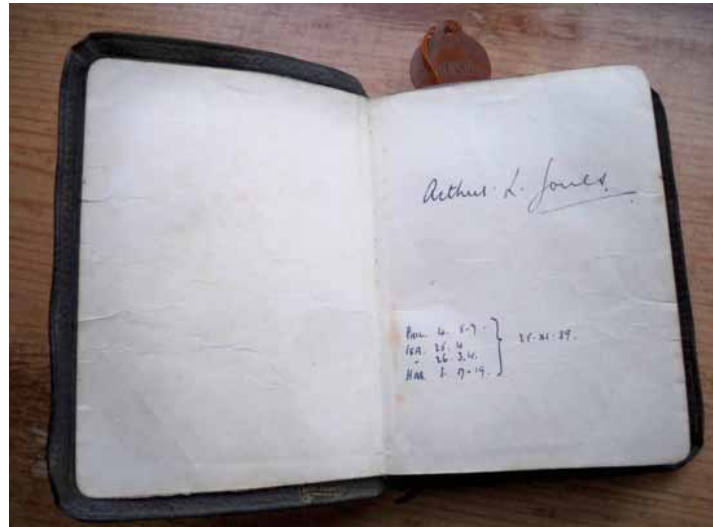 Arthur. L. Joules.
PHIL. 4. 5-7.
ISA. 25. 4
" 26. 3,4.
HAB. 3. 17-19.
25-XI-39.